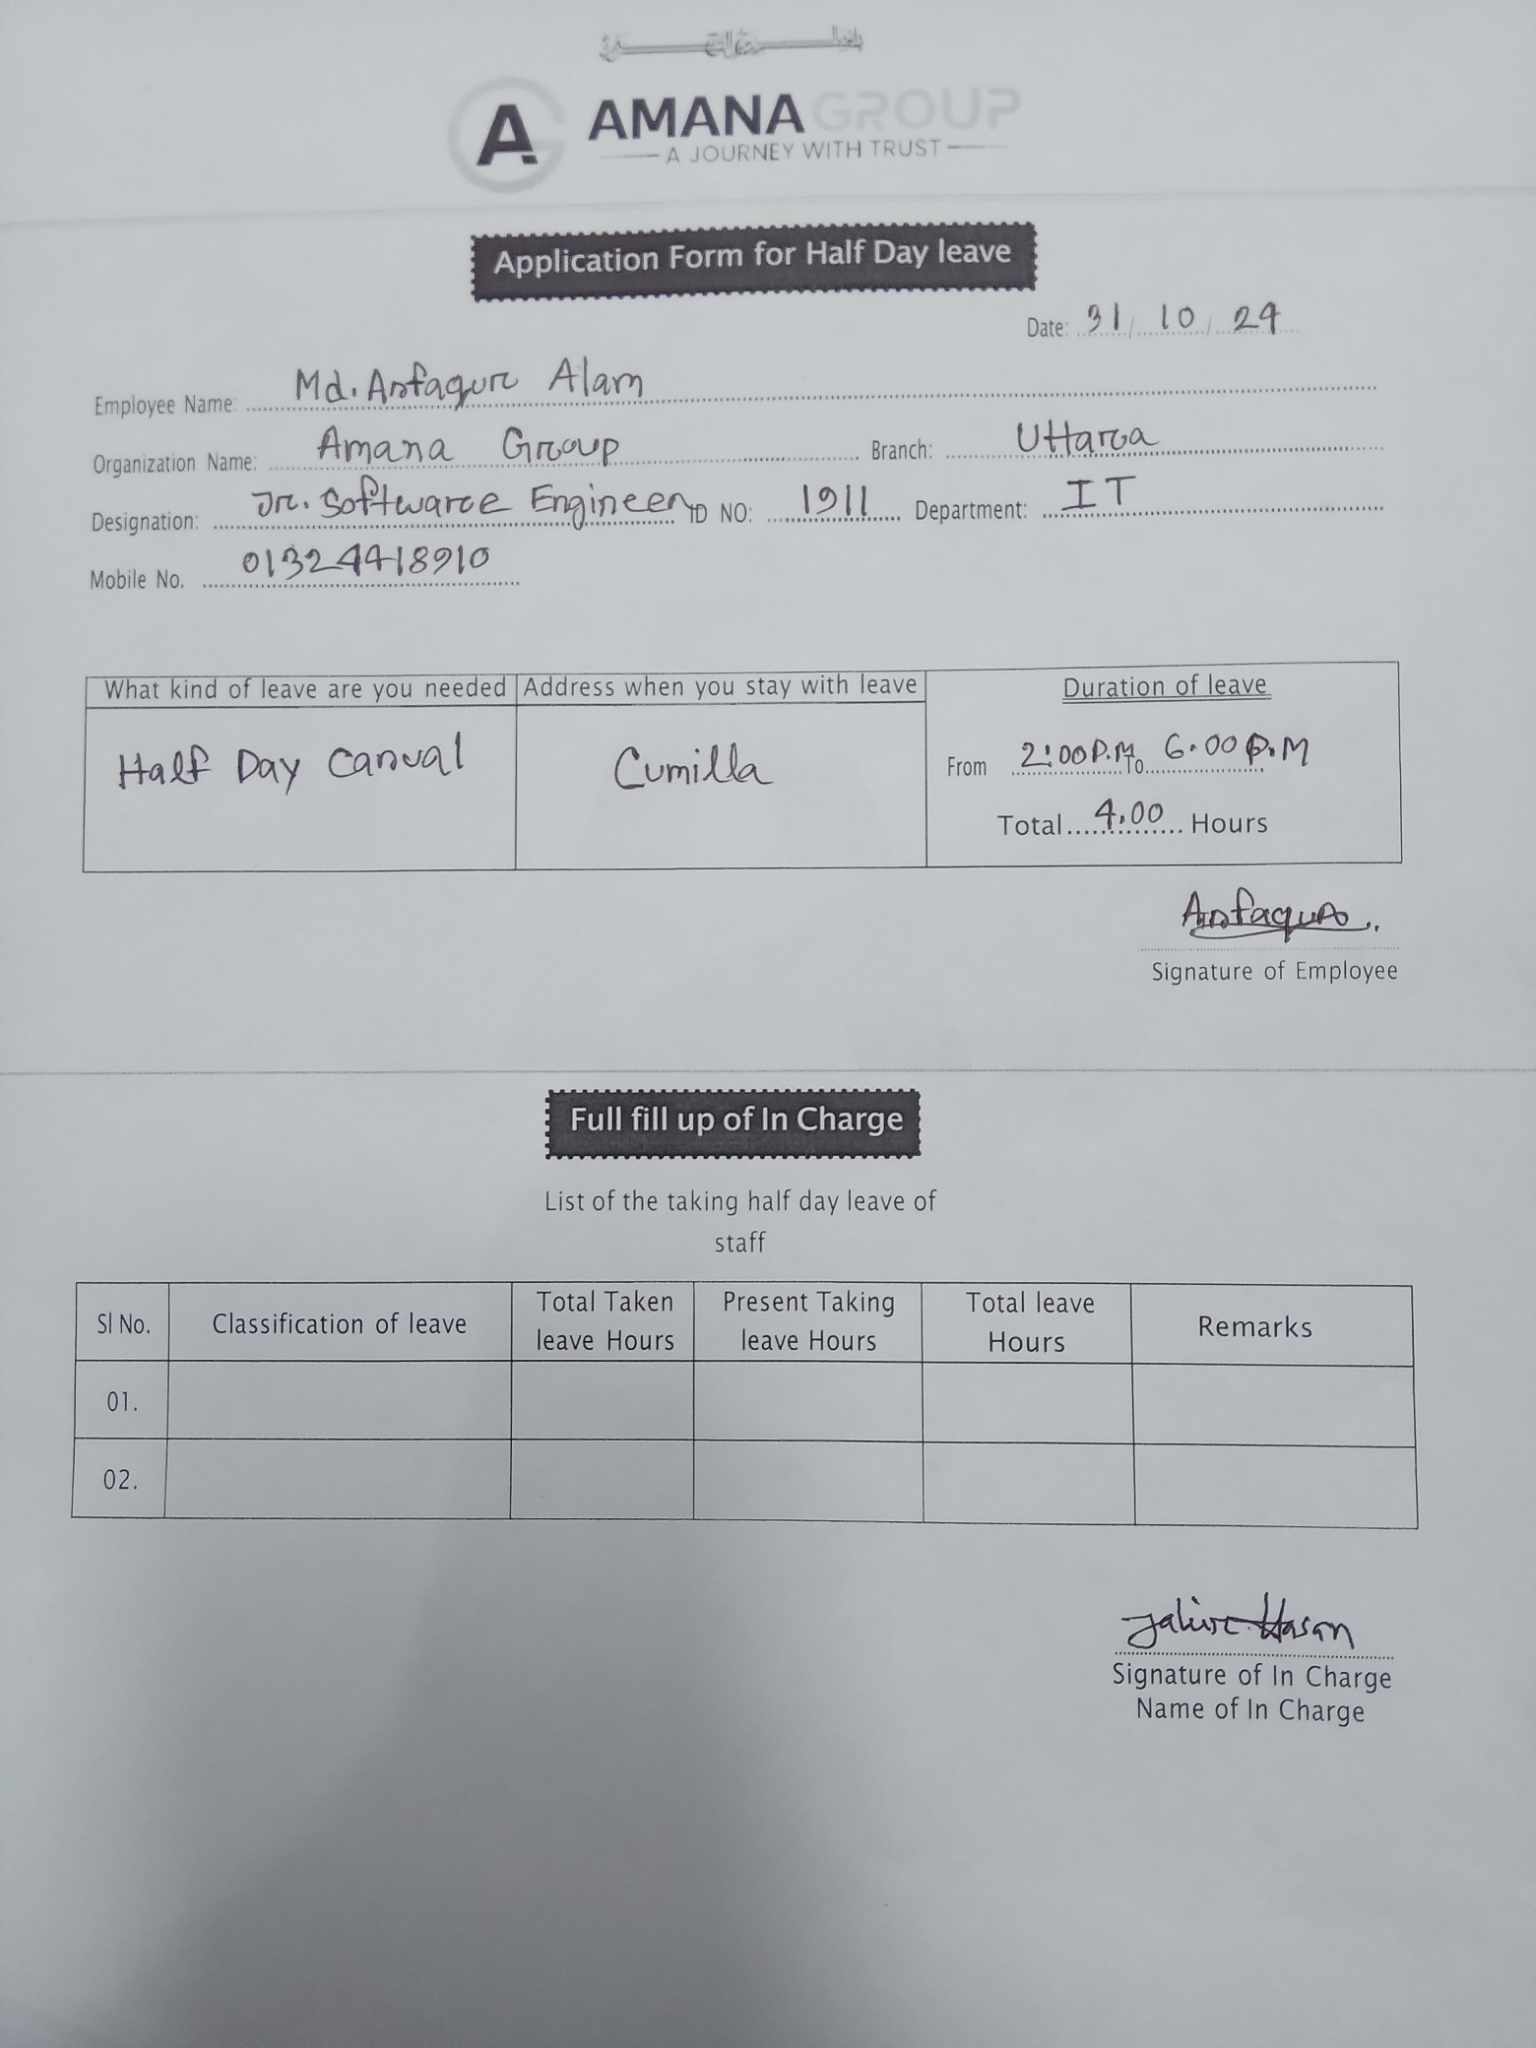 AMANA GROUP
A JOURNEY WITH TRUST
Application Form for Half Day leave
Date: 31/10/24
Employee Name: Md. Asfaqur Alam
Organization Name: Amana Group Branch: Uttara
Designation: Jr. Software Engineer ID NO: 1911 Department: IT
Mobile No. 01324418910
What kind of leave are you needed Address when you stay with leave Duration of leave
Half Day Casual Cumilla From 2:00 P.M To 6.00 P.M
Total 4.00 Hours
Asfaqur
Signature of Employee
Full fill up of In Charge
List of the taking half day leave of
staff
Sl No. Classification of leave Total Taken leave Hours Present Taking leave Hours Total leave Hours Remarks
01.
02.
Hasan
Signature of In Charge
Name of In Charge